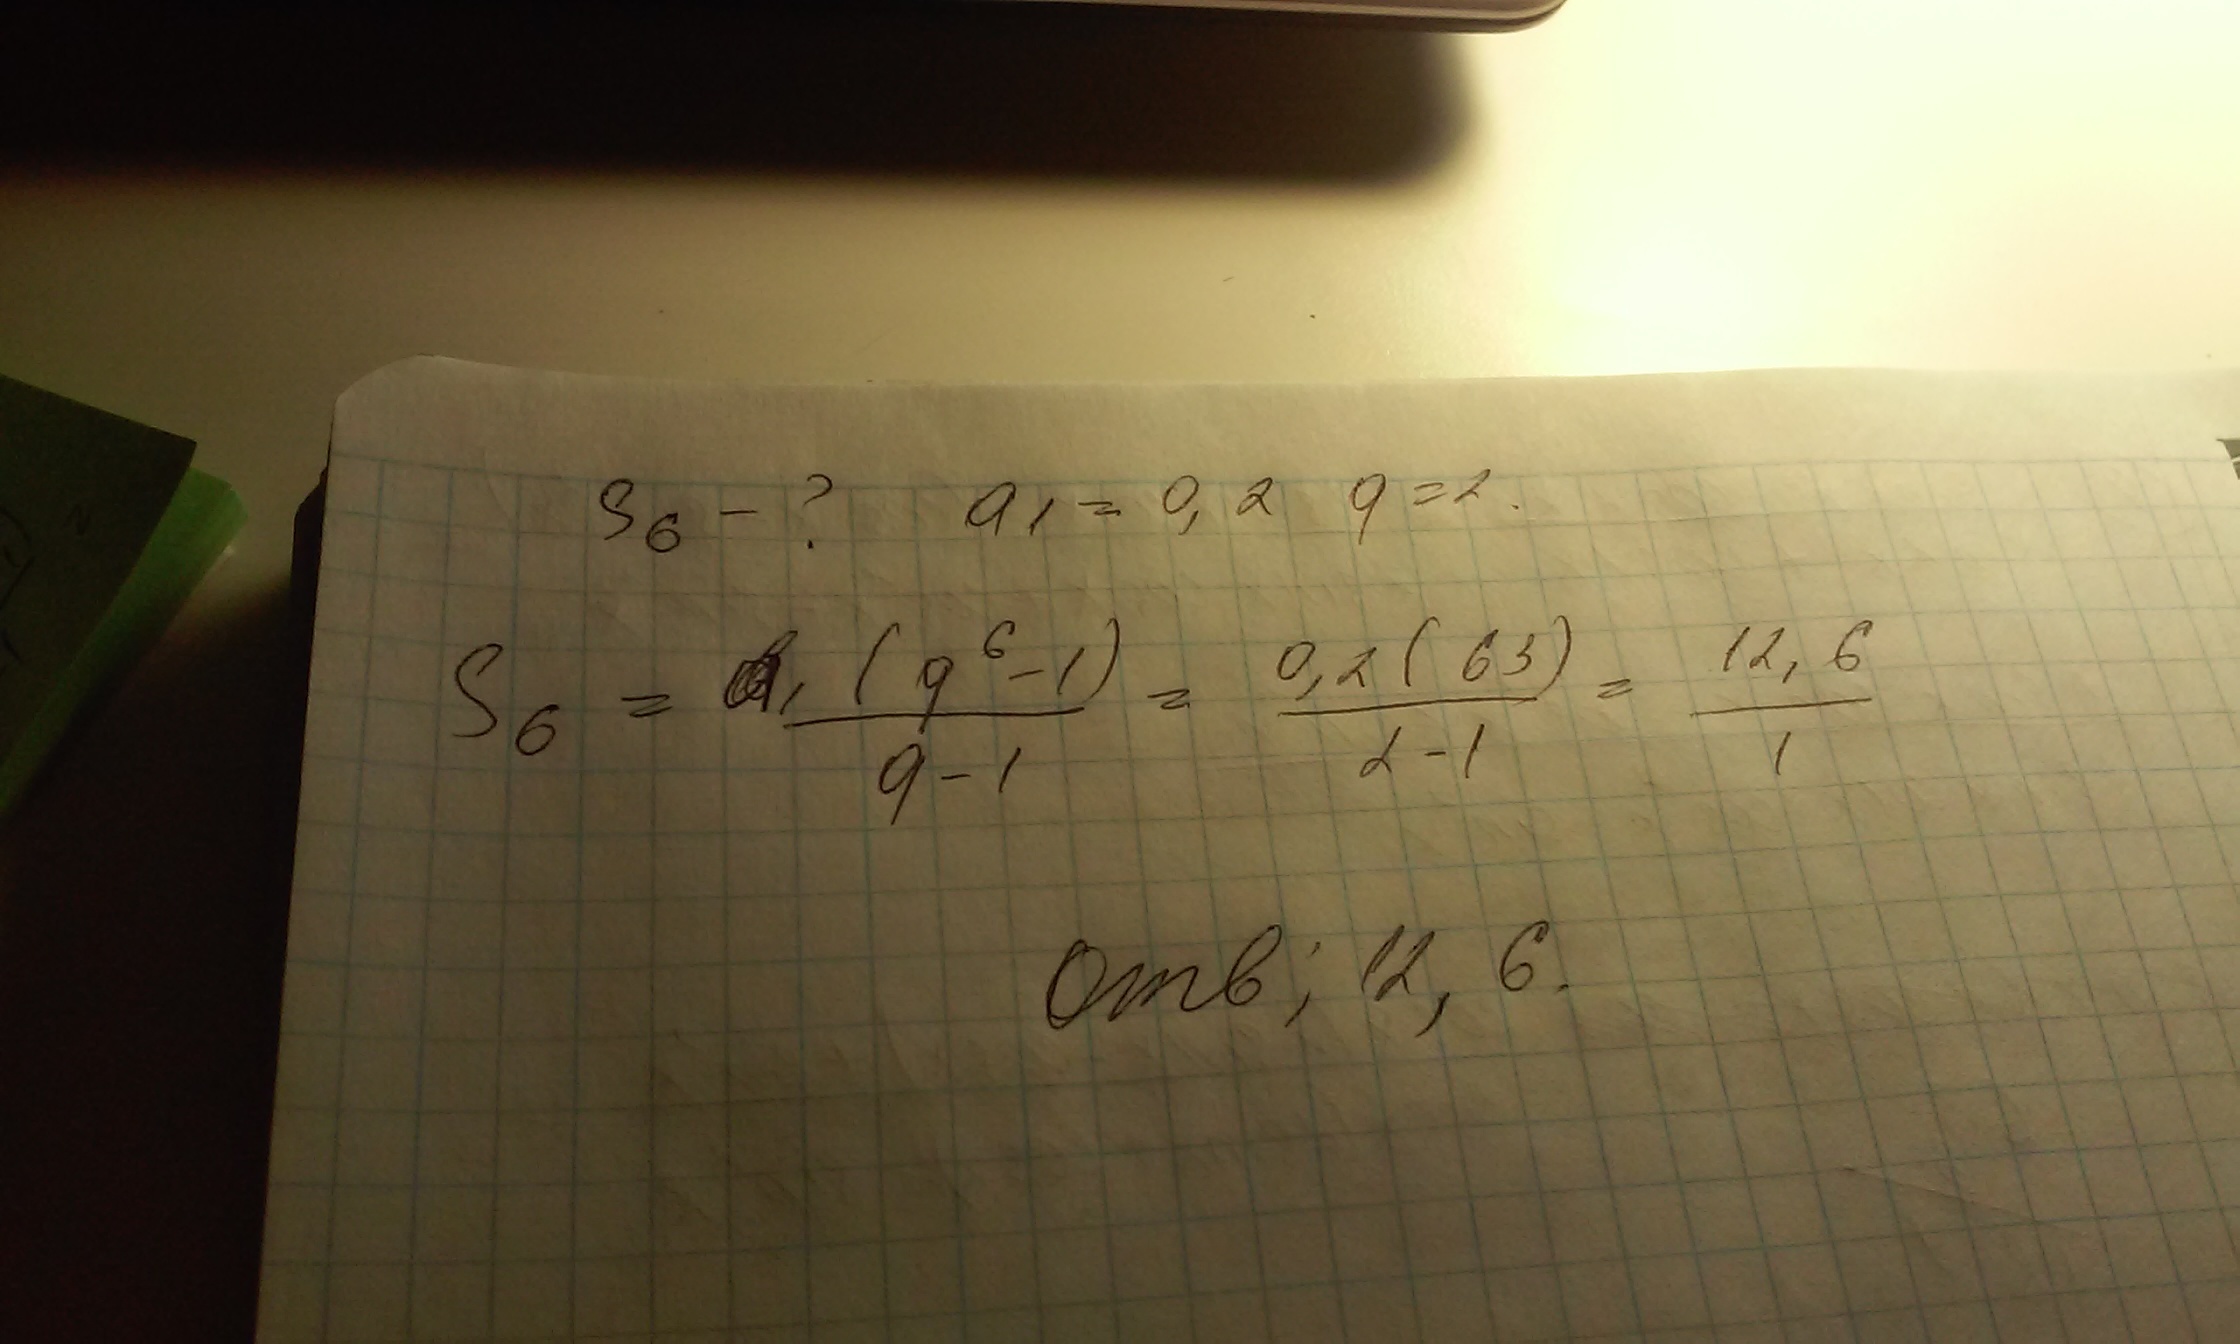 S₆ - ? a₁ = 0,2 q = 2.
S₆ = a₁(q⁶-1)/(q-1) = 0,2(63)/(2-1) = 12,6/1
Отв; 12,6.